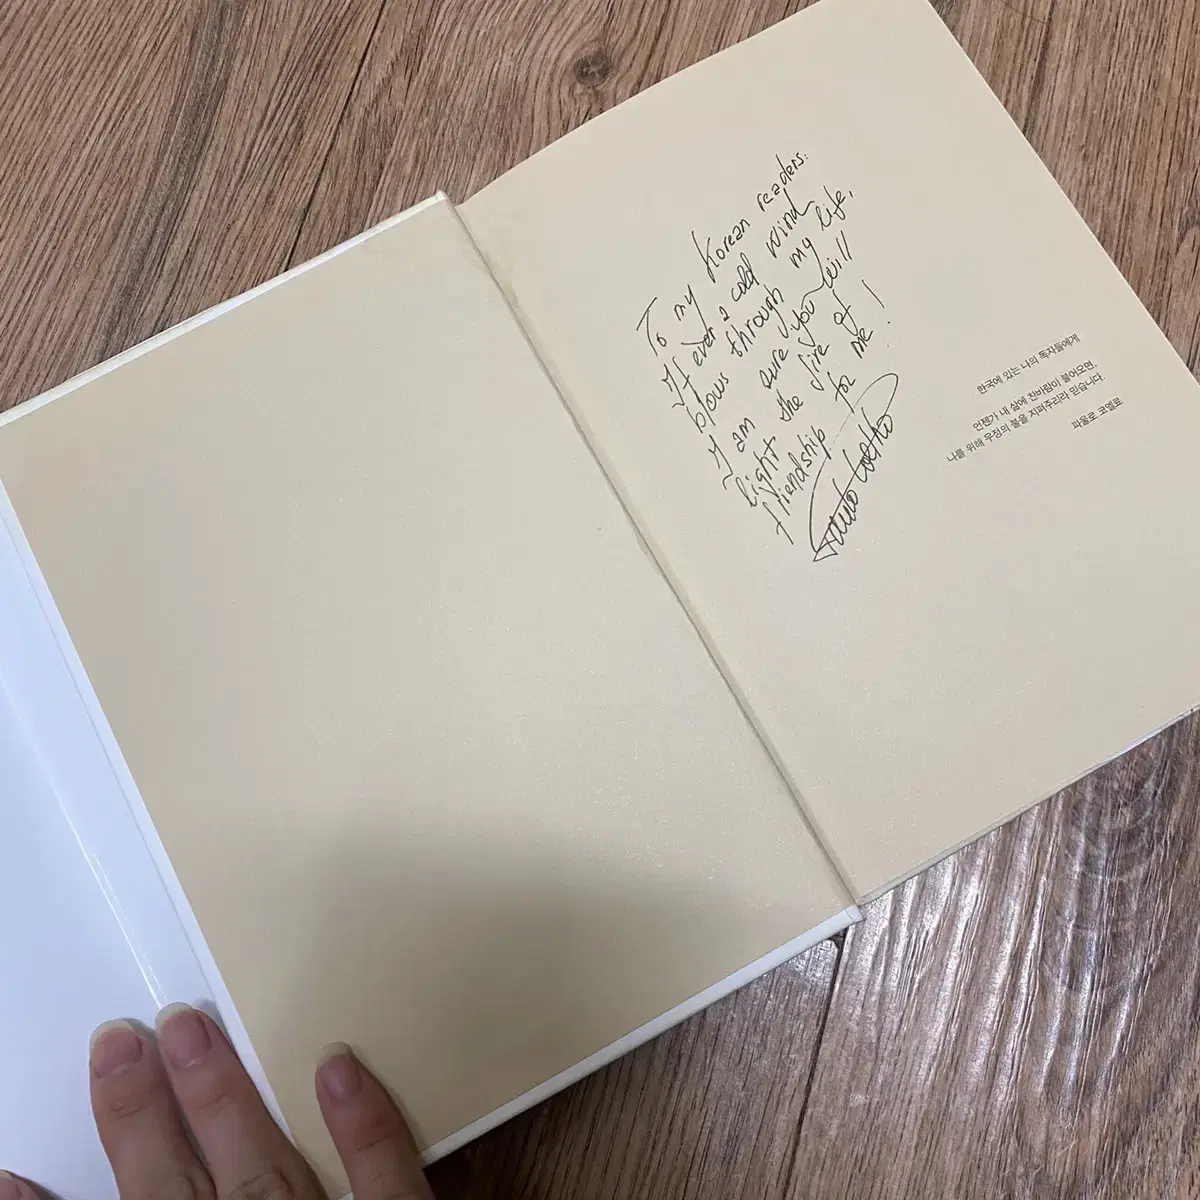 To my Korean readers:
If ever a cold wind
blows through my life,
I am sure you will
light the fire of
friendship for me!
Paulo Coelho
한국에 있는 나의 독자들에게
언젠가 내 삶에 찬바람이 불어오면,
나를 위해 우정의 불을 지펴주리라 믿습니다.
파울로 코엘료